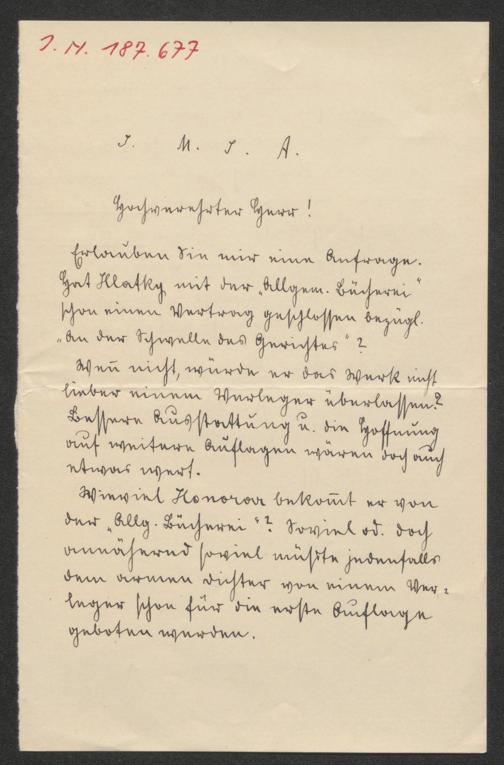 J. N. 187.677
J. M. J. A.
Hochverehrter Herr!
Erlauben Sie mir eine Anfrage.
Hat Hlatky mit der „Allgem. Bücherei“
schon einen Vertrag geschlossen bezügl.
„An der Schwelle des Gerichtes“?
Wen̄ nicht, würde er das Werk nicht
lieber einem Verleger überlassen?
Bessere Ausstattung u. die Hoffnung
auf weitere Auflagen wären doch auch
etwas wert.
Wieviel Honorar bekom̄t er von
der „Allg. Bücherei“? Soviel od. doch
annähernd soviel müßte jedenfalls
dem armen Dichter von einem Ver=
leger schon für die erste Auflage
geboten werden.